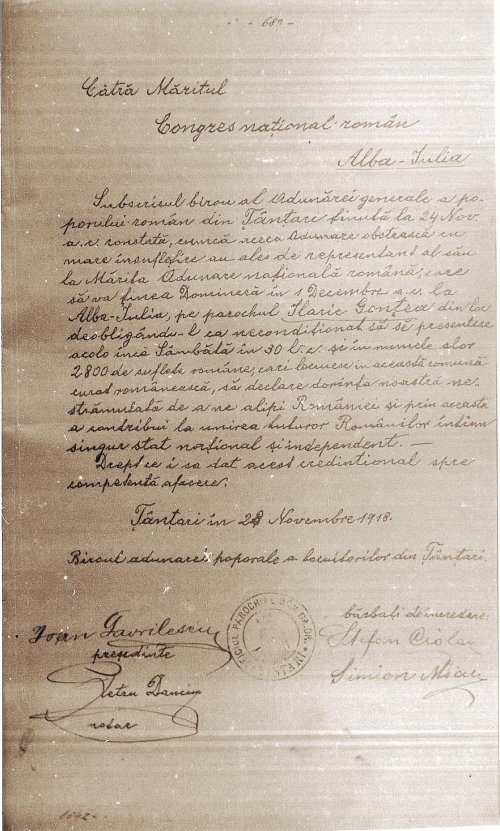 - 689 -
Cătră Măritul
Congres național român
Alba-Iulia
Subscrisul birou al Adunărei generale a po-
porului român din Țânțari ținută la 24 Nov
a.c. constată, cumcă aceea Adunare obstească cu
mare însuflețire au ales de representant al său
la Mărita Adunare națională română, care
să va ținea Dominecă în 1 Decembre a.c. la
Alba-Iulia, pe parochul Ilarie Gonțea din loc
deobligându-l ca necondiționat să se presenteze
acolo încă Sâmbătă în 30 l.c. și în numele alor
2800 de suflete române, cari locuesc în această comună
curat românească, să declare dorința noastră ne
strămutată de a ne alipi României și prin aceasta
a contribui la unirea tuturor Românilor într'un
singur stat național și independent. —
Drept ce i sa dat acest credintional spre
competentă afacere.
Țânțari în 28 Novembre 1918.
Biroul adunarei poporale a locuitorilor din Țânțari.
bărbați deincredere:
Ioan Gavrilescu
presedinte
Ștefan Ciolan
Simion Micu
Petru Danciu
notar
OFICIUL PAROCHIAL